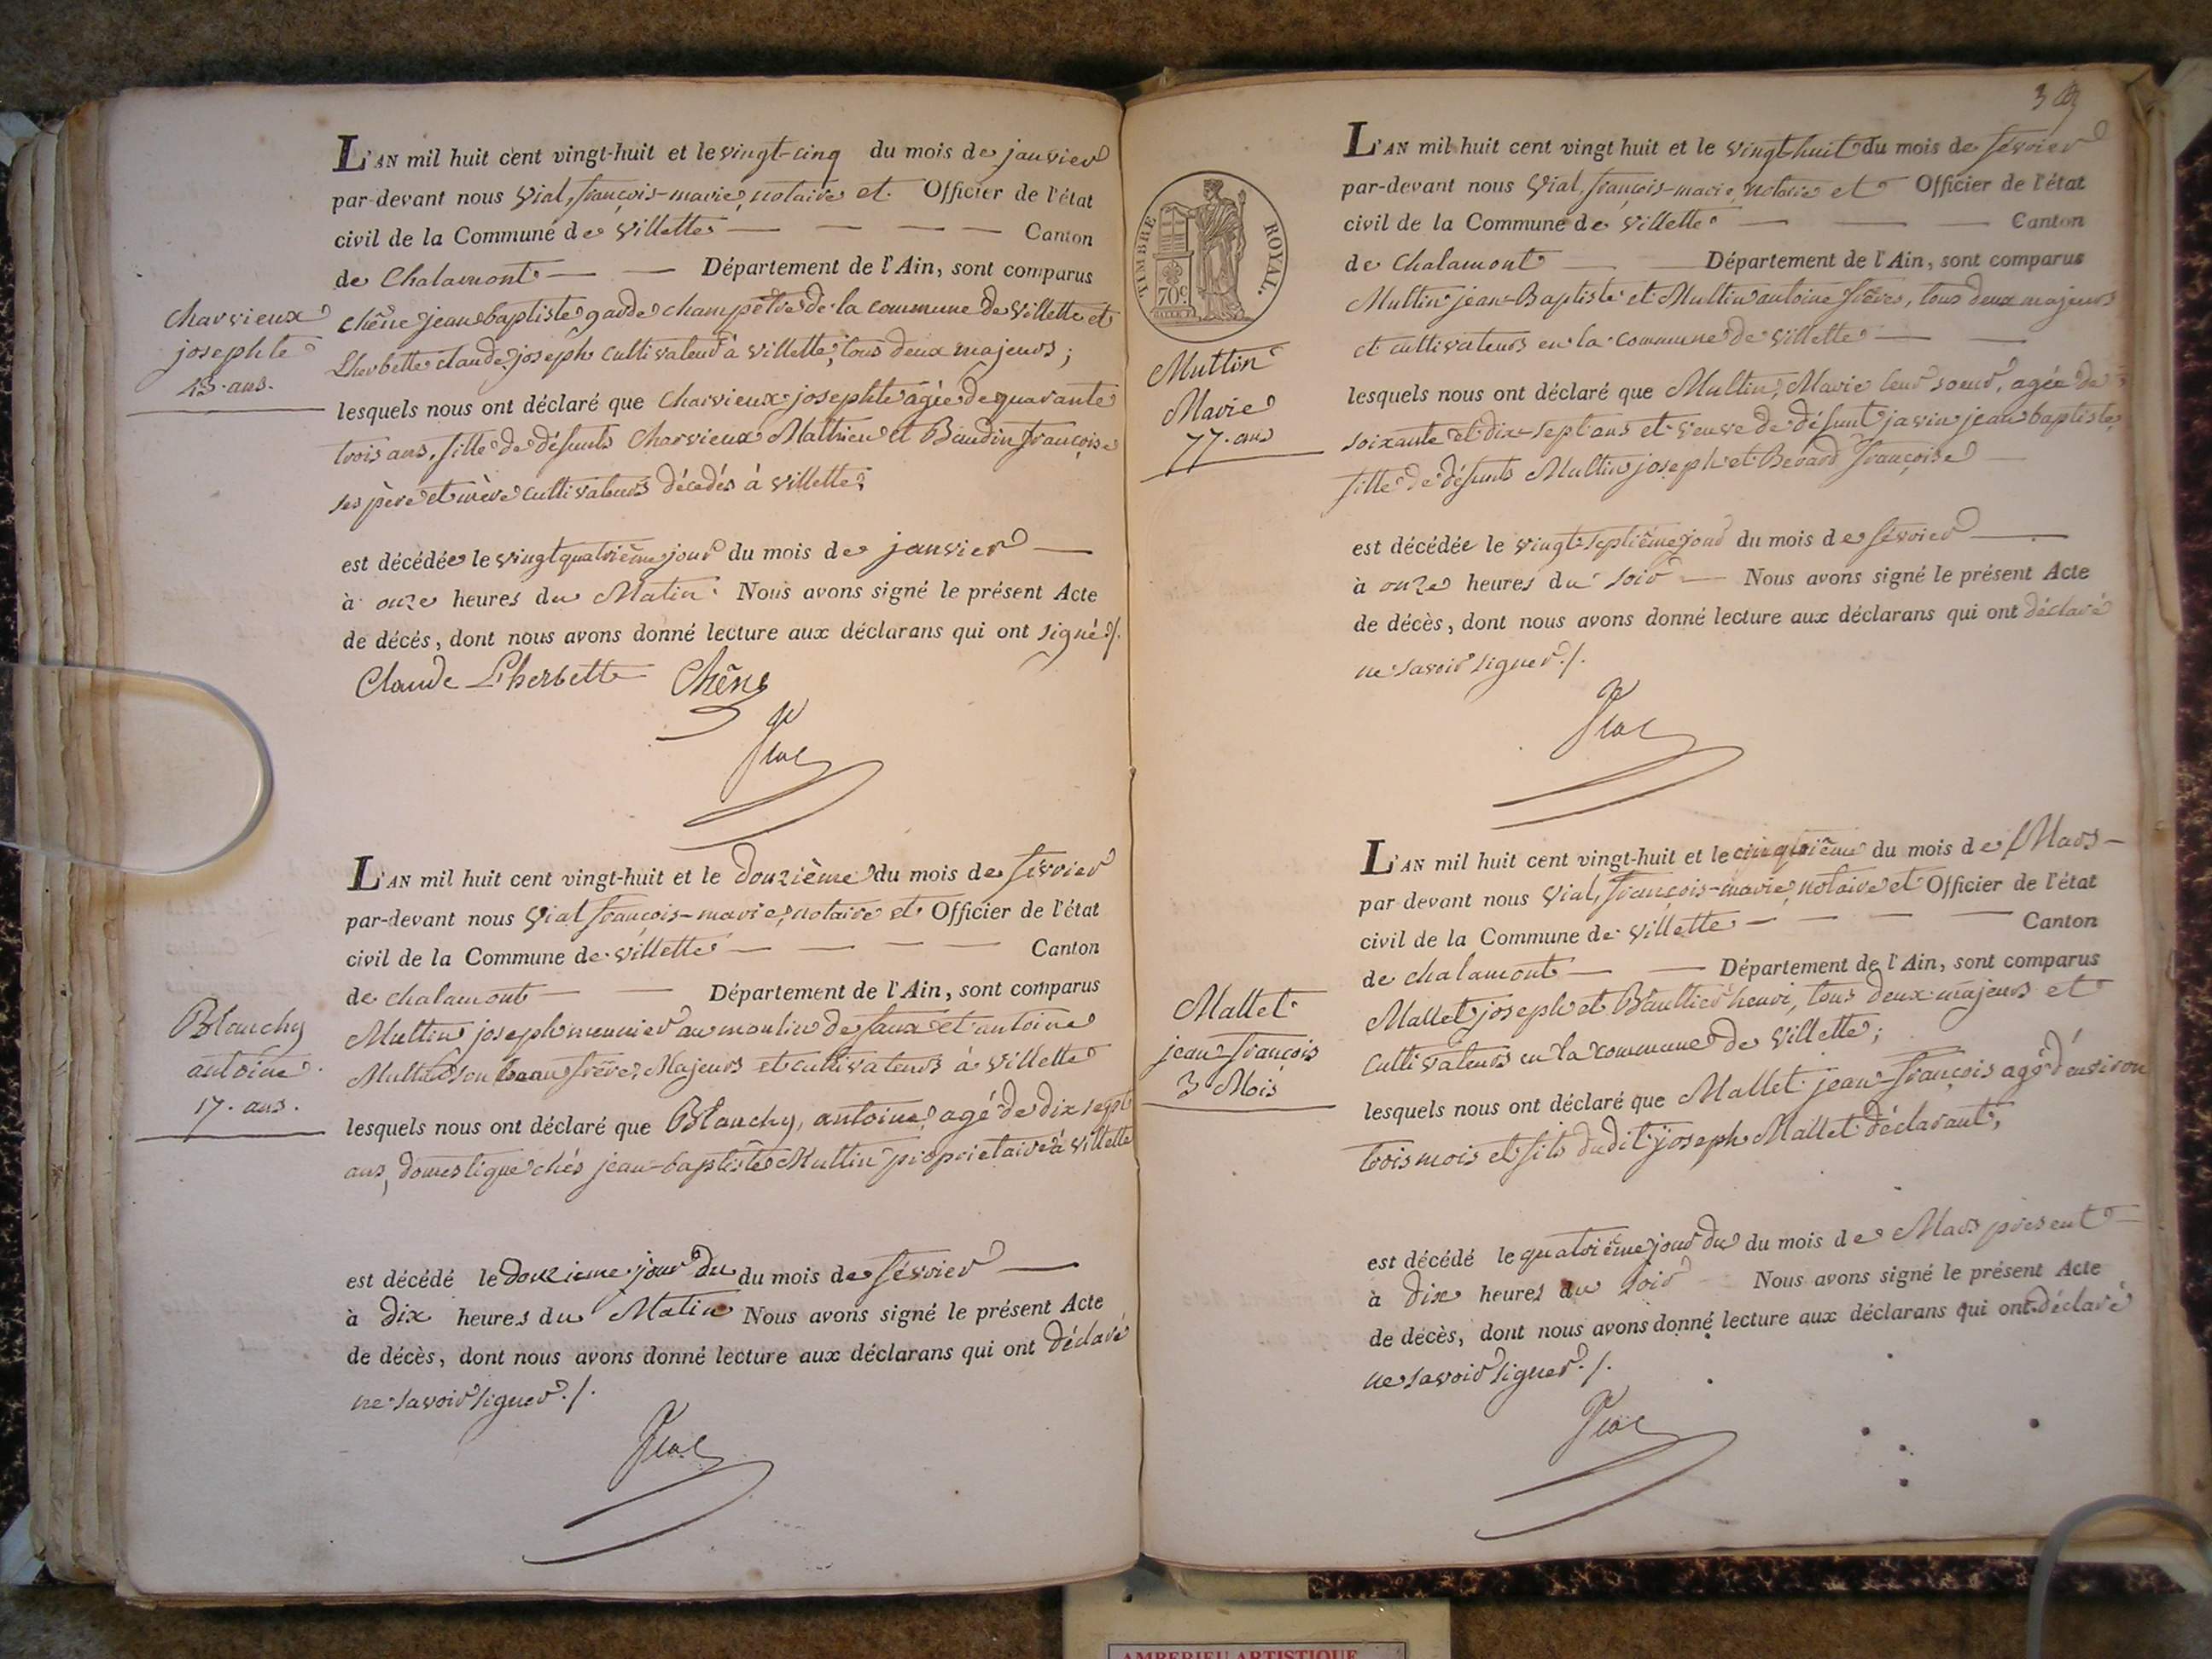 L'AN mil huit cent vingt-huit et le vingt-cinq du mois de janvier
par-devant nous Vial, françois-marie, notaire et Officier de l'état
civil de la Commune de Villette Canton
de Chalamont Département de l'Ain, sont comparus
Chêne jean baptiste garde champêtre de la commune de Villette et
Lherbette claude joseph cultivateur à Villette, tous deux majeurs ;
lesquels nous ont déclaré que Charvieux josephte agée de quarante
trois ans, fille de défunts Charvieux Mathieu et Baudin françoise
ses père et mère cultivateurs décédés à Villette ;
est décédée le vingt quatrième jour du mois de janvier
à onze heures du Matin. Nous avons signé le présent Acte
de décés, dont nous avons donné lecture aux déclarans qui ont signé ./.
Claude Lherbette Chêne
Vial
Charvieux
josephte
43. ans.
L'AN mil huit cent vingt-huit et le douzième du mois de février
par-devant nous Vial françois-marie, notaire et Officier de l'état
civil de la Commune de Villette Canton
de chalamont Département de l'Ain, sont comparus
Muttin joseph meunier au moulin de faux et antoine
Muttin son beau frère, Majeurs et cultivateurs à Villette
lesquels nous ont déclaré que Blanchy, antoine, agé de dix sept
ans, domestique chés jean-baptiste Muttin propriétaire à villette
est décédé le douzieme jour du du mois de février
à Dix heures du Matin Nous avons signé le présent Acte
de décès, dont nous avons donné lecture aux déclarans qui ont déclaré
ne savoir signer ./.
Vial
Blanchy
antoine
17. ans.
3
TIMBRE ROYAL.
70c
L'AN mil huit cent vingt huit et le vingt-huit du mois de février
par-devant nous Vial, françois-marie, notaire et Officier de l'état
civil de la Commune de Villette Canton
de Chalamont Département de l'Ain, sont comparus
Muttin jean-Baptiste et Muttin antoine frères, tous deux majeurs
et cultivateurs en la commune de Villette
lesquels nous ont déclaré que Muttin, Marie leur soeur, agée de
soixante et dix-sept ans et veuve de défunt javin jean baptiste,
fille de défunts Muttin joseph et Berard françoise
est décédée le vingt-septième jour du mois de février
à onze heures du soir Nous avons signé le présent Acte
de décès, dont nous avons donné lecture aux déclarans qui ont déclaré
ne savoir signer ./.
Vial
Muttin
Marie
77. ans
L'AN mil huit cent vingt-huit et le cinquième du mois de Mars
par devant nous Vial, françois-marie, notaire et Officier de l'état
civil de la Commune de Villette Canton
de chalamont Département de l'Ain, sont comparus
Mallet joseph et henri, tous deux majeurs et
cultivateurs en la commune de Villette ;
lesquels nous ont déclaré que Mallet jean-françois agé d'environ
trois mois et fils dudit joseph Mallet déclarant,
est décédé le quatrième jour du du mois de Mars présent
à dix heures du soir Nous avons signé le présent Acte
de décès, dont nous avons donné lecture aux déclarans qui ont déclaré
ne savoir signer ./.
Vial
Mallet
jean-françois
3 Mois
AMBERIEU ARTISTIQUE